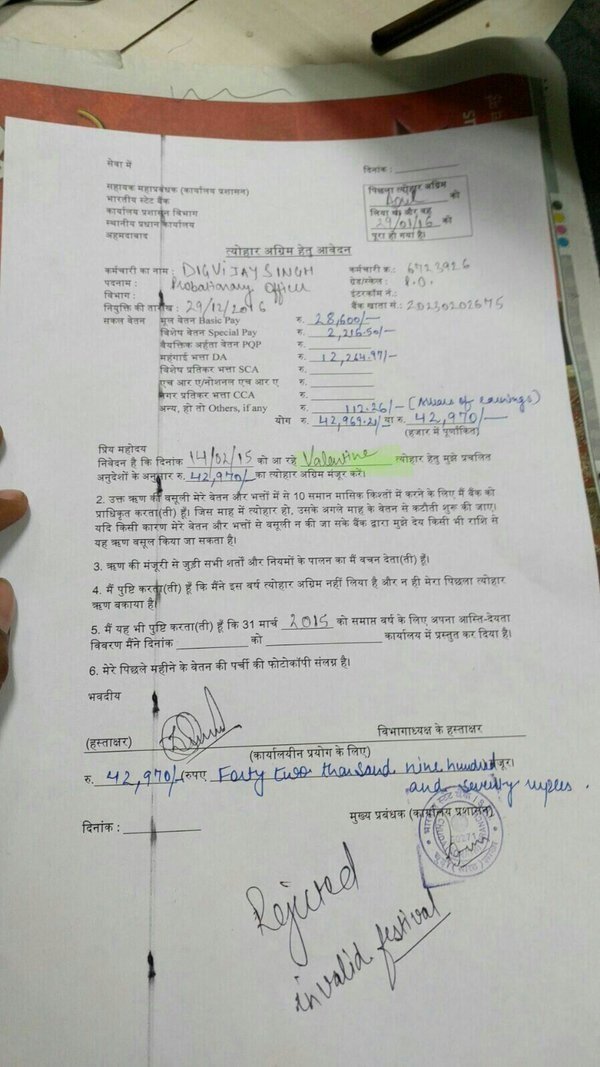 सेवा में
दिनांक :
सहायक महाप्रबंधक (कार्यालय प्रशासन)
भारतीय स्टेट बैंक
कार्यालय प्रशासन विभाग
स्थानीय प्रधान कार्यालय
अहमदाबाद
पिछला त्योहार अग्रिम
को
लिया था और वह
29/01/16 को
पूरा हो गया है।
त्योहार अग्रिम हेतु आवेदन
कर्मचारी का नाम : DIGVIJAY SINGH
कर्मचारी क्र.: 6723926
पदनाम : Probationary Officer
ग्रेड/स्केल : P.O.
विभाग :
इंटरकॉम नं.:
नियुक्ति की तारीख : 29/12/2016
बैंक खाता सं.: 20230202675
सकल वेतन मूल वेतन Basic Pay रु. 28,600/-
विशेष वेतन Special Pay रु. 2,216.50/-
वैयक्तिक अर्हता वेतन PQP रु.
महंगाई भत्ता DA रु. 12,264.97/-
विशेष प्रतिकर भत्ता SCA रु.
एच आर ए/नोशनल एच आर ए रु.
नगर प्रतिकर भत्ता CCA रु.
अन्य, हो तो Others, if any 112.26/- ( of earnings)
योग रु. 42,969.21/- या रु. 42,970/-
(हजार में पूर्णांकित)
प्रिय महोदय
निवेदन है कि दिनांक 14/02/15 को आ रहे Valentine त्योहार हेतु मुझे प्रचलित
अनुदेशों के अनुसार रु. 42,970/- का त्योहार अग्रिम मंजूर करें।
2. उक्त ऋण की वसूली मेरे वेतन और भत्तों में से 10 समान मासिक किश्तों में करने के लिए मैं बैंक को
प्राधिकृत करता(ती) हूँ। जिस माह में त्योहार हो, उसके अगले माह के वेतन से कटौती शुरू की जाए।
यदि किसी कारण मेरे वेतन और भत्तों से वसूली न की जा सके बैंक द्वारा मुझे देय किसी भी राशि से
यह ऋण वसूल किया जा सकता है।
3. ऋण की मंजूरी से जुड़ी सभी शर्तों और नियमों के पालन का मैं वचन देता(ती) हूँ।
4. मैं पुष्टि करता(ती) हूँ कि मैंने इस वर्ष त्योहार अग्रिम नहीं लिया है और न ही मेरा पिछला त्योहार
ऋण बकाया है
5. मैं यह भी पुष्टि करता(ती) हूँ कि 31 मार्च 2015 को समाप्त वर्ष के लिए अपना आस्ति-देयता
विवरण मैंने दिनांक को कार्यालय में प्रस्तुत कर दिया है।
6. मेरे पिछले महीने के वेतन की पर्ची की फोटोकॉपी संलग्न है।
भवदीय
(हस्ताक्षर)
विभागाध्यक्ष के हस्ताक्षर
(कार्यालयीन प्रयोग के लिए)
रु. 42,970/- रुपए Forty two thousand nine hundred मंजूर।
and seventy rupees.
दिनांक :
मुख्य प्रबंधक (कार्यालय प्रशासन)
भारतीय स्टेट बैंक
Rejected
invalid festival